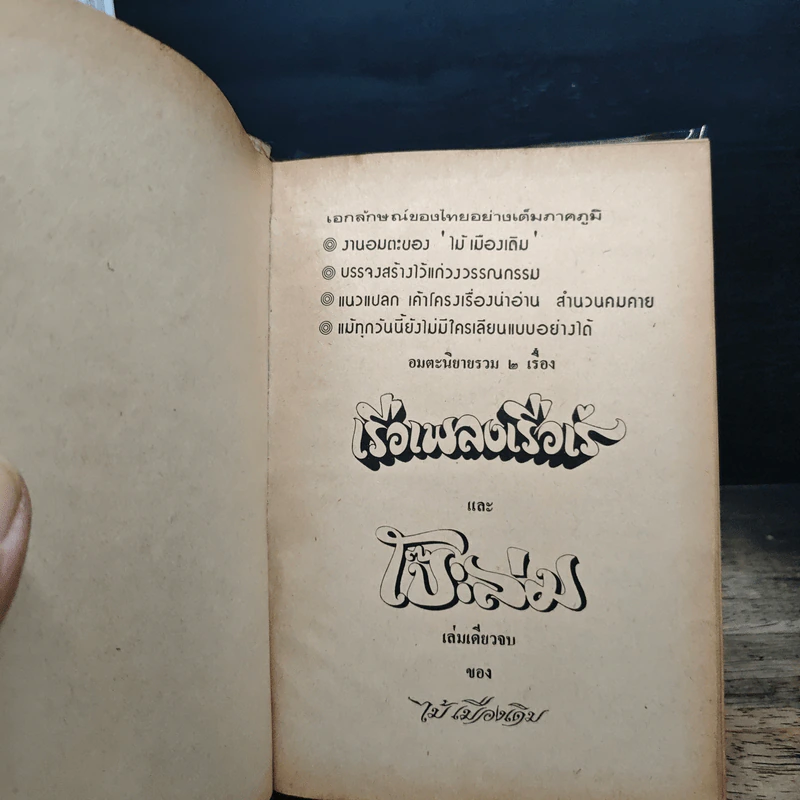 เอกลักษณ์ของไทยอย่างเต็มภาคภูมิ
งานอมตะของ 'ไม้ เมืองเดิม'
บรรจงสร้างไว้แก่วงวรรณกรรม
แนวแปลก เค้าโครงเรื่องน่าอ่าน สำนวนคมคาย
แม้ทุกวันนี้ยังไม่มีใครเลียนแบบอย่างได้
อมตะนิยายรวม ๒ เรื่อง
เรือเพลงเรือเร่
และ
โป๊ะล่ม
เล่มเดียวจบ
ของ
ไม้ เมืองเดิม